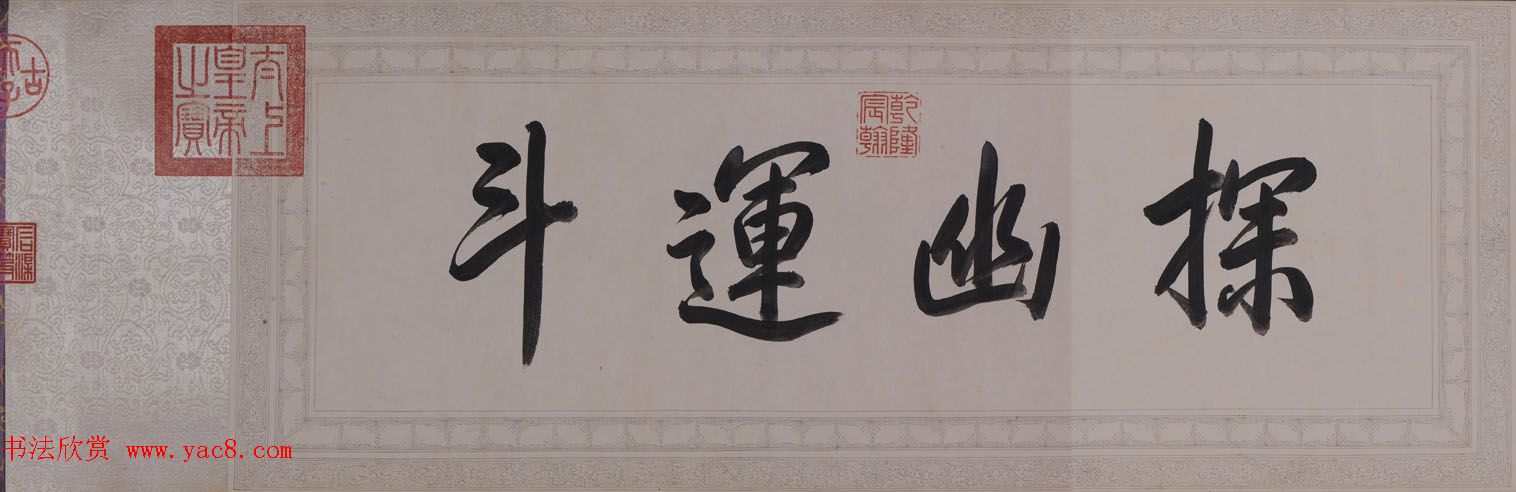 探幽運斗
乾隆宸翰
太上皇帝之寶
石渠寶笈
书法欣赏 www.yac8.com